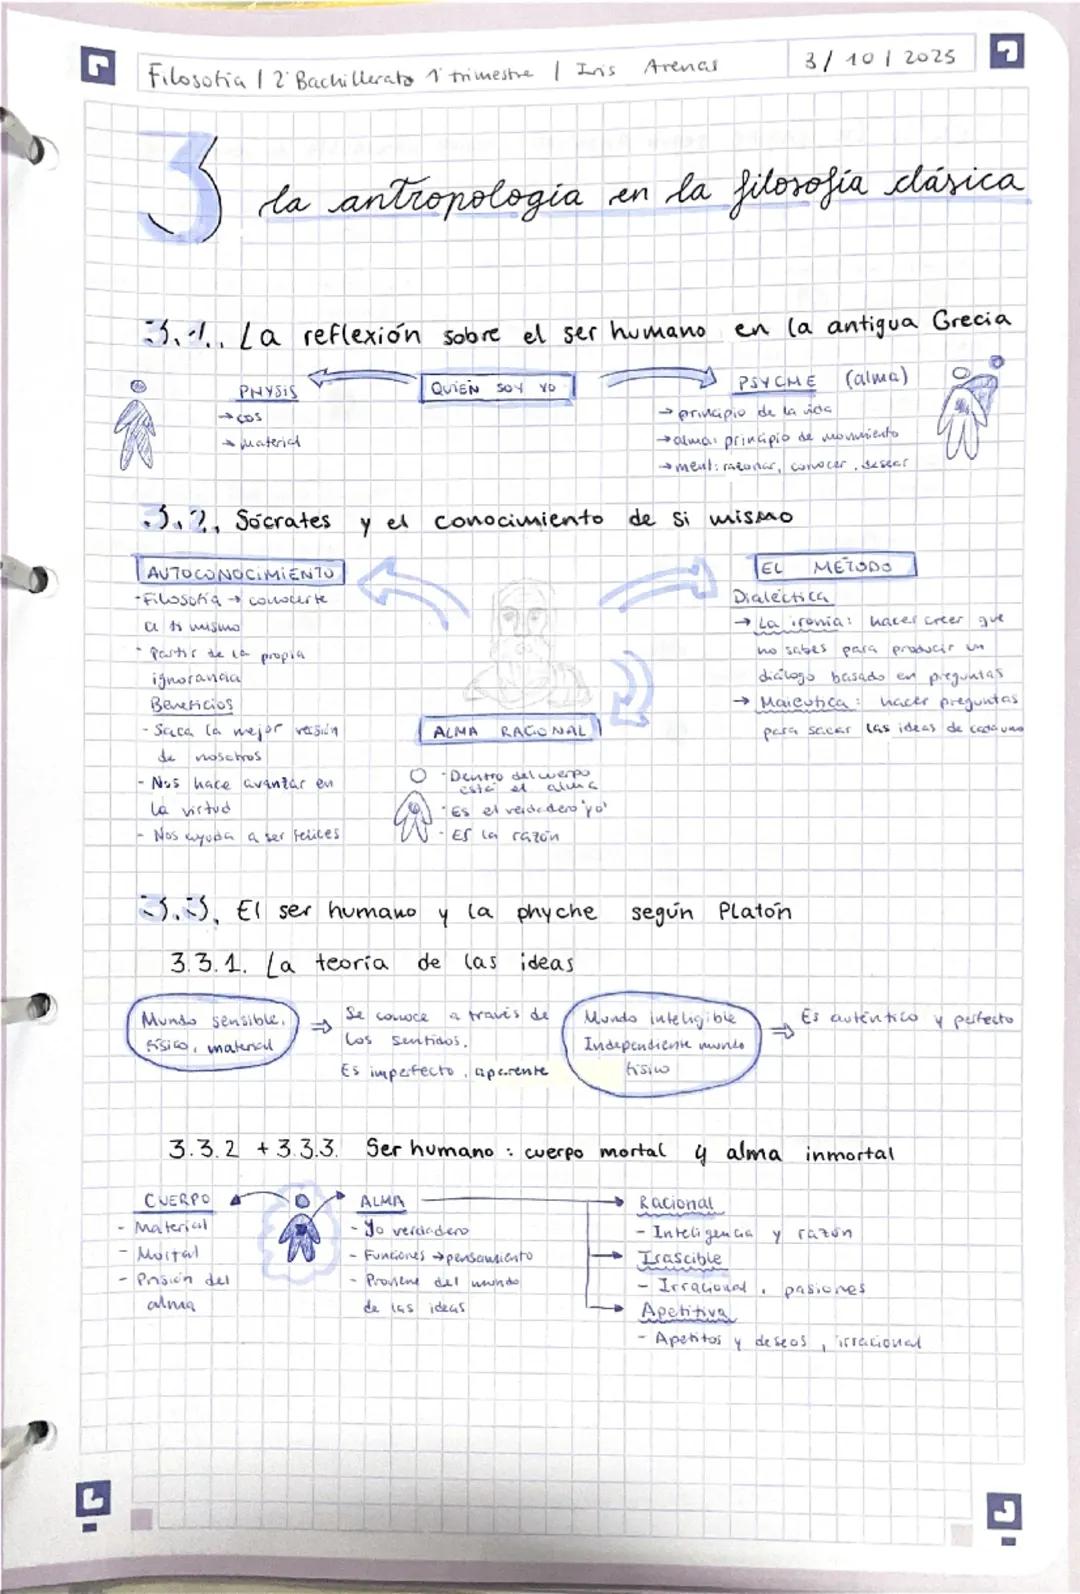 Filosofia | 2º Bachillerato 1º trimestre | Iris Arenas
3/10/2025
3 La antropología en la filosofía clásica
3.1. La reflexión sobre el ser humano en la antigua Grecia
PHYSIS
→ cos
→ material
QUIÉN SOY YO
PSYCHE (alma)
→ principio de la vida
→ alma: principio de movimiento
→ ment: razonar, conocer, desear
3.2. Sócrates y el conocimiento de si mismo
AUTOCONOCIMIENTO
- Filosofía → conocerte
a ti mismo
- Partir de la propia
ignorancia
Beneficios
- Saca la mejor versión
de nosotros
- Nos hace avanzar en
la virtud
- Nos ayuda a ser felices
ALMA RACIONAL
- Dentro del cuerpo
está el alma
- Es el verdadero 'yo'
- Es la razón
EL METODO
Dialéctica
→ La ironía: hacer creer que
no sabes para producir un
diálogo basado en preguntas
→ Maieutica: hacer preguntas
para sacar las ideas de cada uno
3.3. El ser humano y la phyche según Platón
3.3.1. La teoría de las ideas
Mundo sensible,
físico, material
⇒ Se conoce a través de
los sentidos.
Es imperfecto, aparente
Mundo inteligible
Independiente mundo
físico
⇒ Es auténtico y perfecto
3.3.2 + 3.3.3. Ser humano: cuerpo mortal y alma inmortal
CUERPO
- Material
- Mortal
- Prisión del
alma
ALMA
- Yo verdadero
- Funciones → pensamiento
- Proviene del mundo
de las ideas
Racional
- Inteligencia y razón
Irascible
- Irracional, pasiones
Apetitiva
- Apetitos y deseos, irracional